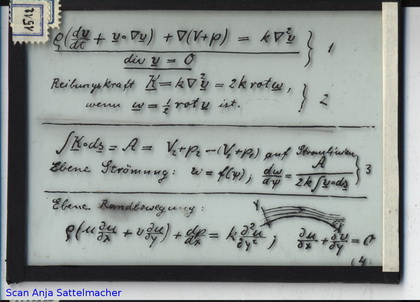 1512
ρ(du/dt + u∘∇u) + ∇(V+p) = k∇²u } 1
div u = 0
Reibungskraft K = k∇²u = 2k rot w, } 2
wenn w = ½ rot u ist.
∫K∘ds = A = V₂+p₂ − (V₁+p₁) auf Stromlinien } 3
Ebene Strömung: w = f(ψ), dw/dψ = A / 2k∫u∘ds
Ebene Randbewegung:
ρ(u ∂u/∂x + v ∂u/∂y) + dp/dx = k ∂²u/∂y² ; ∂u/∂x + ∂v/∂y = 0
(4.
Scan Anja Sattelmacher